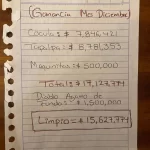 (Ganancia Mes Diciembre)
Cocula: $ 7,846,421
Tuxpan: $ 8,781,353
Maquinitas: $ 500,000
Total: $ 17,127,774
Dado Arjona de
fondo: $ 1,500,000
Limpio = $ 15,627,774